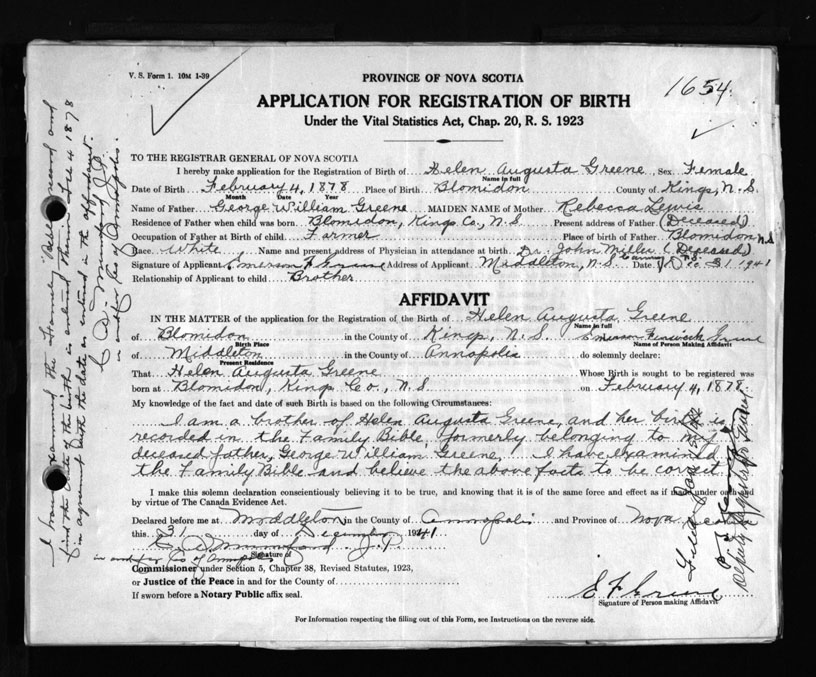 V. S. Form 1. 10M 1-39
1654
PROVINCE OF NOVA SCOTIA
APPLICATION FOR REGISTRATION OF BIRTH
Under the Vital Statistics Act, Chap. 20, R. S. 1923
TO THE REGISTRAR GENERAL OF NOVA SCOTIA
I hereby make application for the Registration of Birth of Helen Augusta Greene, Sex Female
Name in full
Date of Birth February 4, 1878 Place of Birth Blomidon County of Kings, N.S.
Month Date Year
Name of Father George William Greene MAIDEN NAME of Mother Rebecca Lewis
Residence of Father when child was born Blomidon, Kings Co., N.S. Present address of Father (Deceased)
Occupation of Father at Birth of child Farmer Place of birth of Father Blomidon N.S
Race White Name and present address of Physician in attendance at birth Dr. John Miller (Deceased)
Canning N.S.
Signature of Applicant Emerson F Address of Applicant Middleton, N.S. Date Dec 31 1941
Relationship of Applicant to child Brother
AFFIDAVIT
IN THE MATTER of the application for the Registration of the Birth of Helen Augusta Greene
Name in full
of Blomidon in the County of Kings, N.S. Emerson Fenwick
Birth Place Name of Person Making Affidavit
of Middleton in the County of Annapolis do solemnly declare:
Present Residence
That Helen Augusta Greene Whose Birth is sought to be registered was
born at Blomidon, Kings Co., N.S. on February 4, 1878.
My knowledge of the fact and date of such Birth is based on the following Circumstances:
I am a brother of Helen Augusta Greene, and her birth is
recorded in the Family Bible, formerly belonging to my
deceased father, George William Greene. I have examined
the Family Bible and believe the above facts to be correct
I make this solemn declaration conscientiously believing it to be true, and knowing that it is of the same force and effect as if made under oath and
by virtue of The Canada Evidence Act.
Declared before me at Middleton in the County of Annapolis and Province of Nova Scotia
this 31 day of December 1941
J.P.
in and for Co of Annapolis
Signature of
Commissioner under Section 5, Chapter 38, Revised Statutes, 1923,
or Justice of the Peace in and for the County of
If sworn before a Notary Public affix seal.
E F
Signature of Person making Affidavit
For Information respecting the filling out of this Form, see Instructions on the reverse side.
I have examined the Family Bible record and
find the date of the birth is entered therein Feb 4 1878
in agreement with the date as entered in the affidavit.
J.P.
in and for Co of Annapolis.
Deputy Registrar General